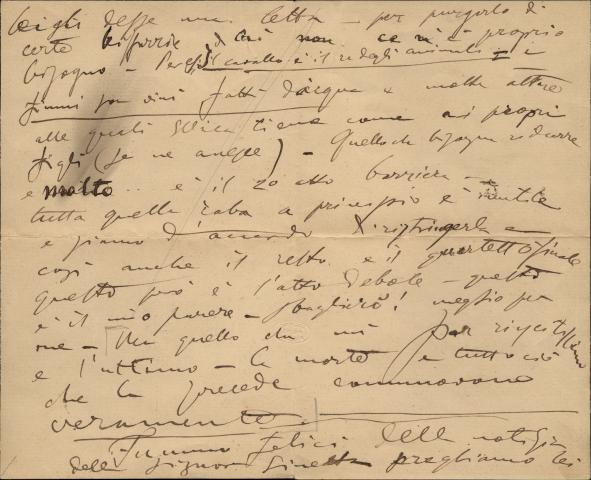 Luigi desse una letta - per purgarlo di
certe bizzarrie di cui non ce n'è proprio
bisogno - Perché il cavallo è il re degli animali - i
fiumi son vini fatti d'acqua e molte altre
alle quali Illica tiene come ai propri
figli (se ne avesse) - Quello che bisogna ridurre
e molto... è il 2o atto barriera -
tutta quella roba a principio è inutile
e siamo d'accordo di restringerla -
così anche il resto e il quartetto finale
questo poi è l'atto debole - questo
è il mio parere - sbaglierò! meglio per
me - Ma quello che mi par
è l'ultimo - la morte e tutto ciò
che la precede commuovono
veramente.
Fummo felici delle notizie
della Signora Ginetta preghiamo lei